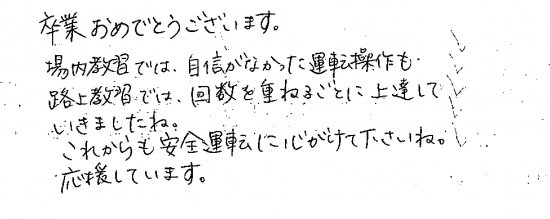 卒業おめでとうございます。
場内教習では、自信がなかった運転操作も
路上教習では、回数を重ねるごとに上達して
いきましたね。
これからも安全運転に心がけて下さいね。
応援しています。